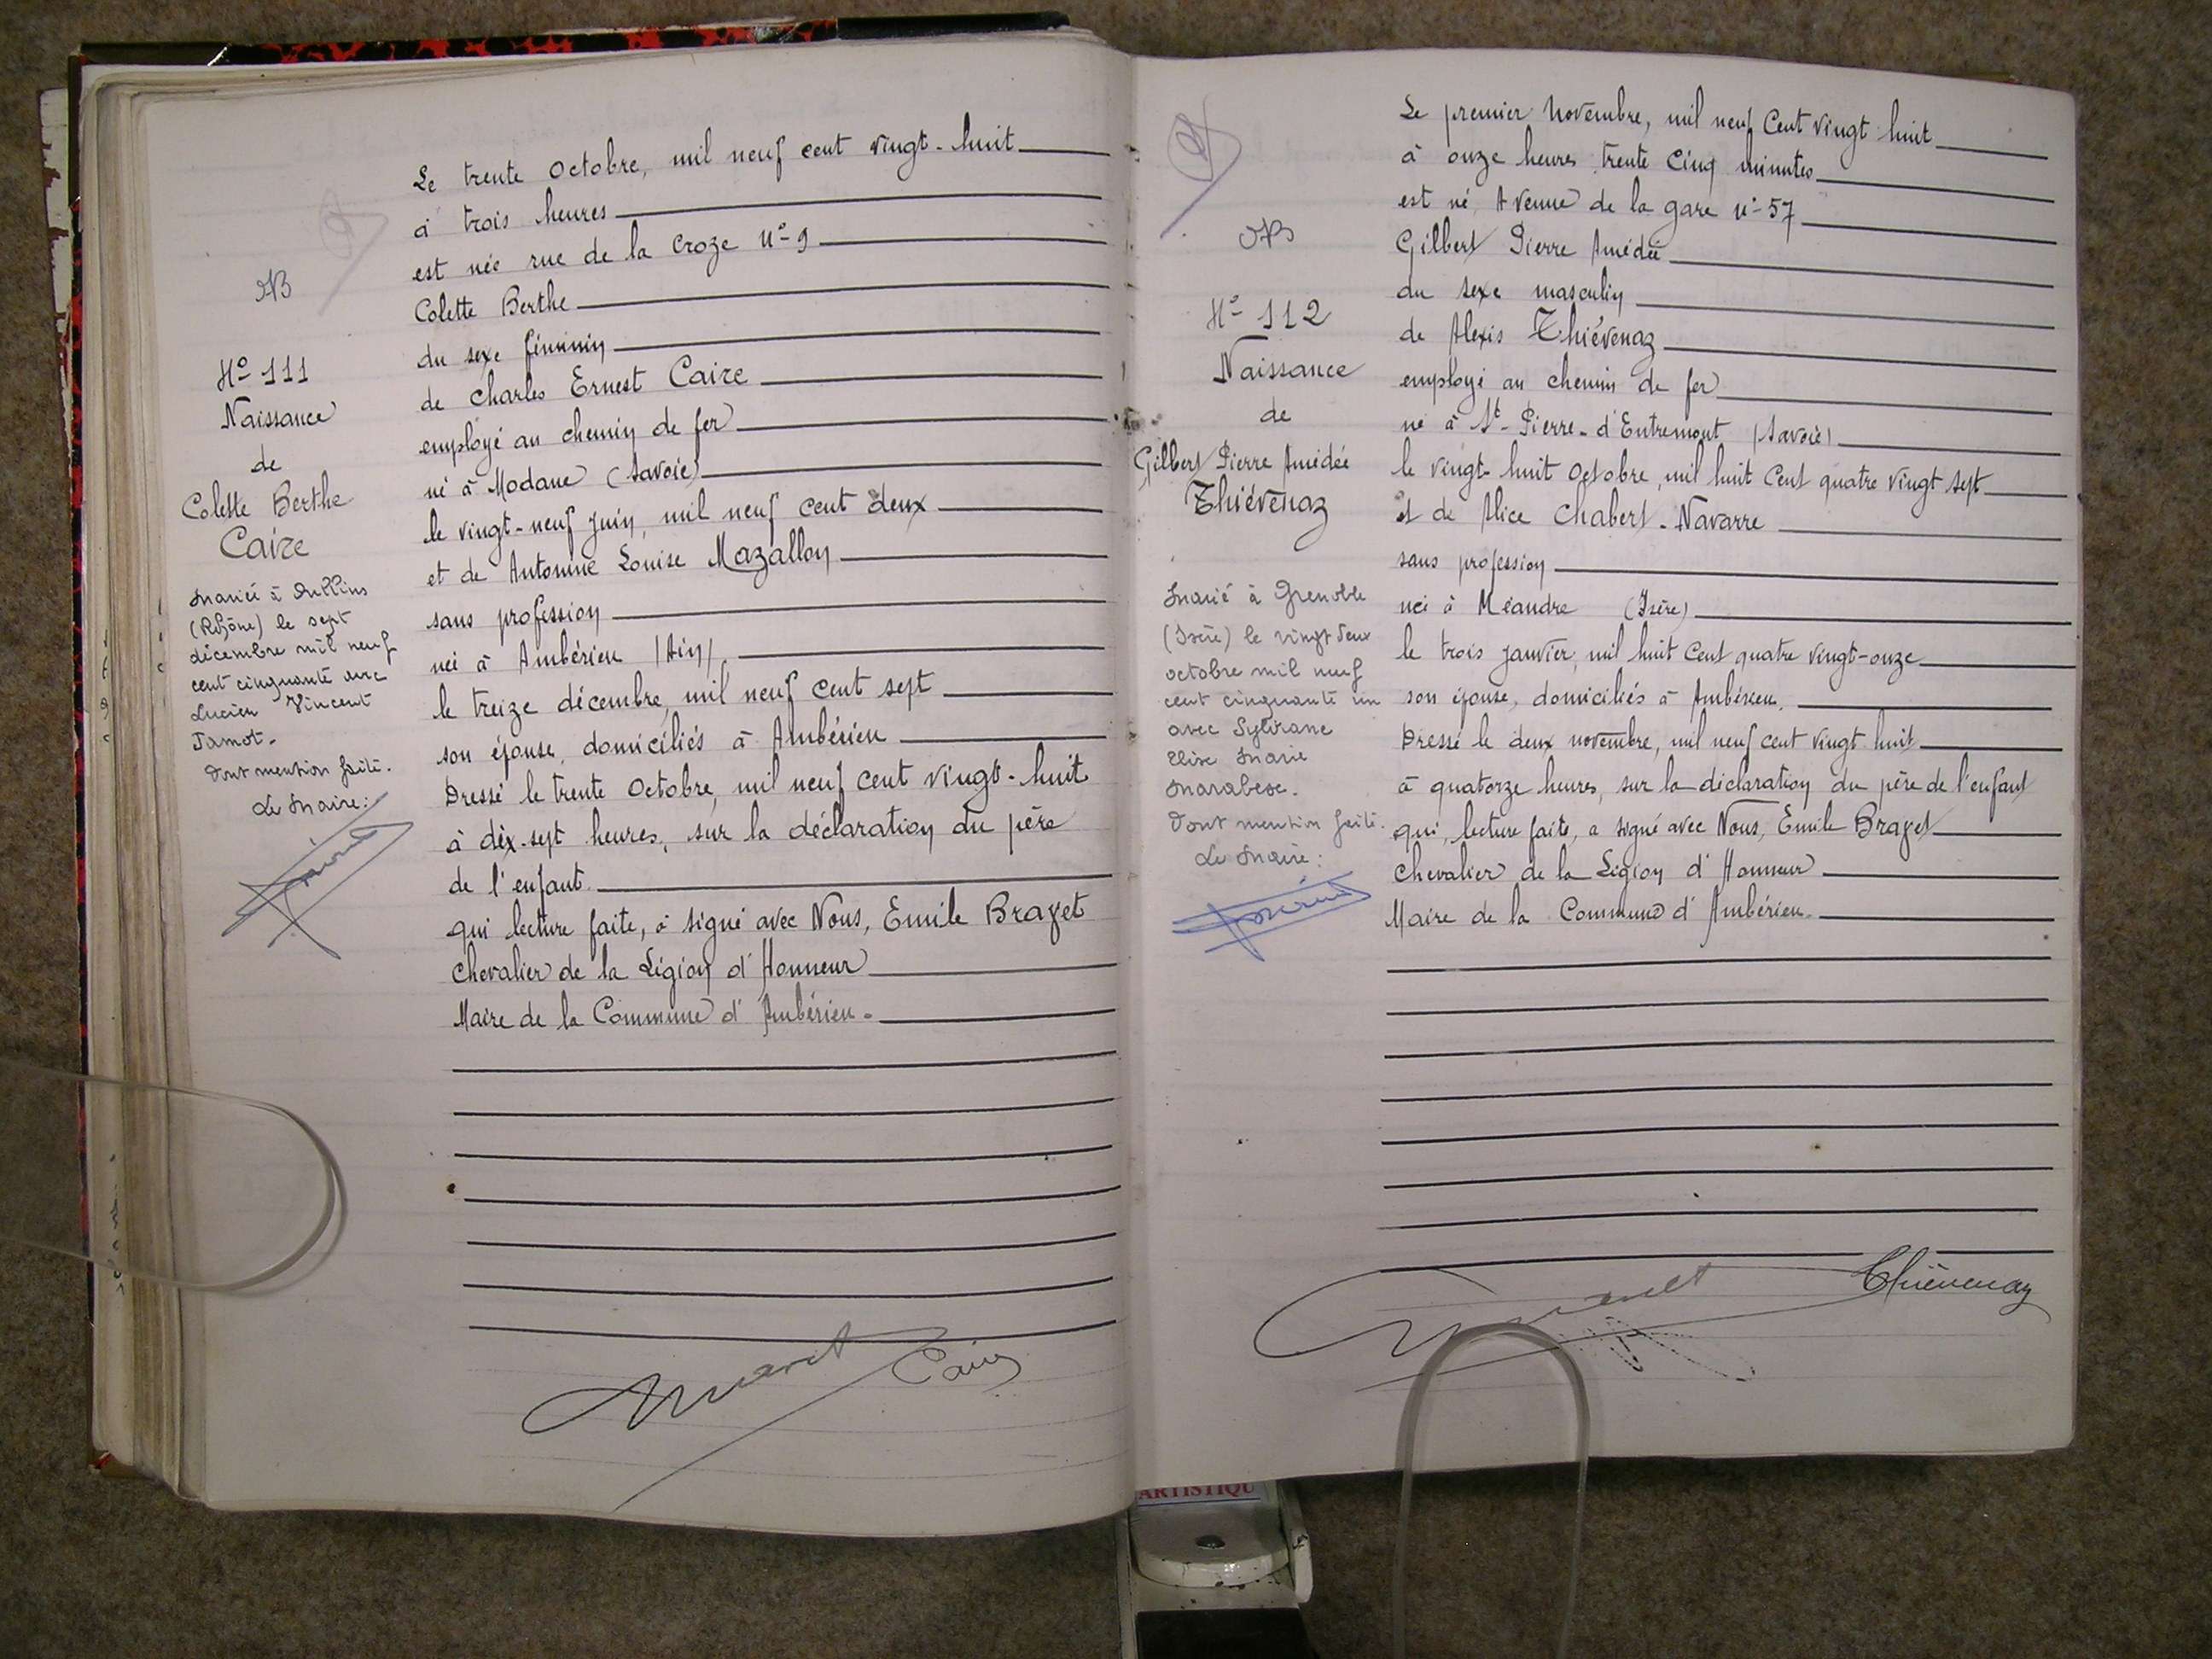 NB
N° 111
Naissance
de
Colette Berthe
Caire
Mariée à Oullins
(Rhône) le sept
décembre mil neuf
cent cinquante avec
Lucien Vincent
Jamot.
Dont mention faite.
Le Maire:
Le trente Octobre, mil neuf cent vingt-huit
à trois heures
est née rue de la Croze n° 9
Colette Berthe
du sexe féminin
de Charles Ernest Caire
employé au chemin de fer
né à Modane (Savoie)
le vingt-neuf juin, mil neuf cent deux
et de Antonine Louise Mazallon
sans profession
née à Ambérieu (Ain)
le treize décembre, mil neuf cent sept
son épouse, domiciliés à Ambérieu
Dressé le trente Octobre, mil neuf cent vingt-huit
à dix-sept heures, sur la déclaration du père
de l'enfant.
qui lecture faite, a signé avec Nous, Emile Bravet
Chevalier de la Légion d'Honneur
Maire de la Commune d'Ambérieu.
Caire
NB
N° 112
Naissance
de
Gilbert Pierre Amédée
Thiévenaz
Marié à Grenoble
(Isère) le vingt deux
octobre mil neuf
cent cinquante un
avec Sylviane
Elise Marie
Marabese.
Dont mention faite.
Le Maire:
Le premier Novembre, mil neuf Cent vingt huit
à onze heures trente cinq minutes
est né, Avenue de la gare n° 57
Gilbert Pierre Amédée
du sexe masculin
de Alexis Thiévenaz
employé au chemin de fer
né à St-Pierre-d'Entremont (Savoie)
le vingt-huit Octobre, mil huit Cent quatre vingt sept
et de Alice Chabert-Navarre
sans profession
née à Méandre (Isère)
le trois janvier, mil huit Cent quatre vingt-onze
son épouse, domiciliés à Ambérieu.
Dressé le deux novembre, mil neuf cent vingt huit
à quatorze heures, sur la déclaration du père de l'enfant
qui, lecture faite, a signé avec Nous, Emile Bravet
Chevalier de la Légion d'Honneur
Maire de la Commune d'Ambérieu.
Thiévenaz
ARTISTIQU